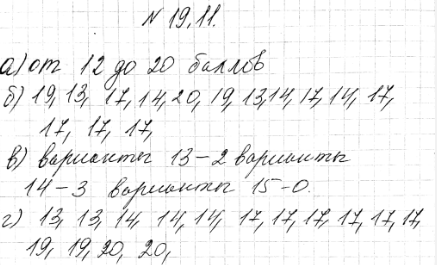 № 19.11.
а) от 12 до 20 баллов
б) 19, 13, 17, 14, 20, 19, 13, 14, 17, 14, 17,
17, 17, 17,
в) варианты 13 – 2 варианты
14 – 3 варианты 15 – 0.
г) 13, 13, 14, 14, 14, 17, 17, 17, 17, 17, 17,
19, 19, 20, 20,